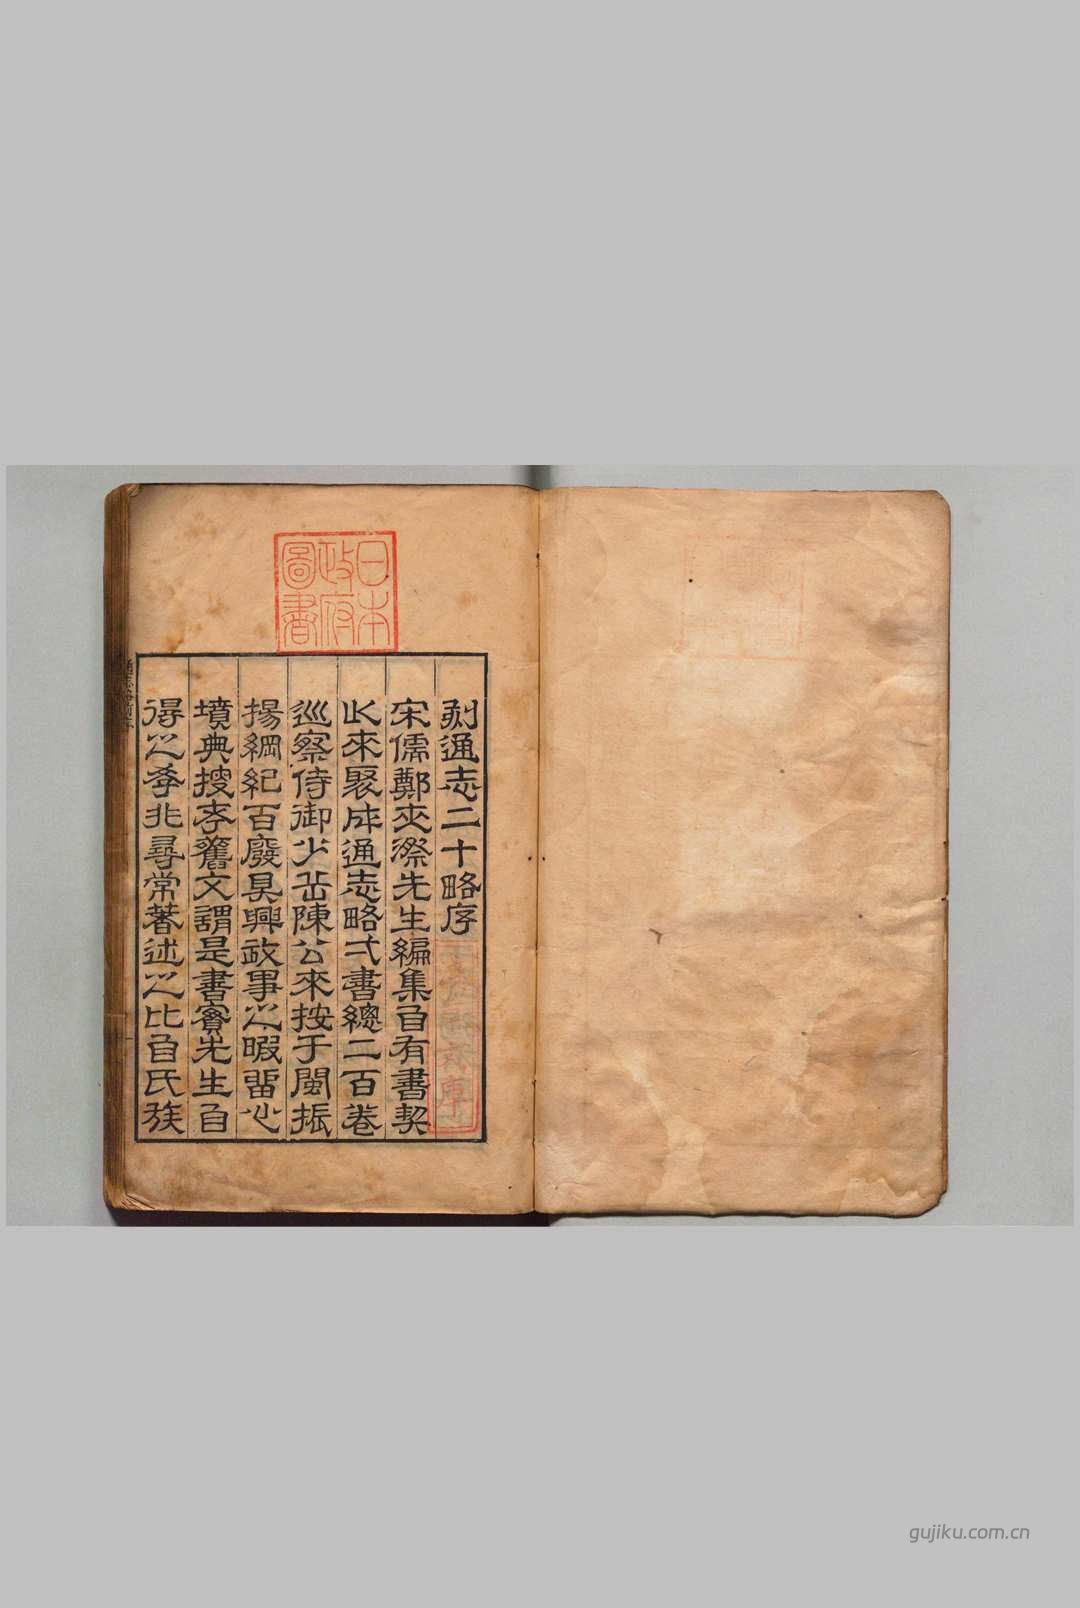 日本
政府
圖書
刻通志二十略序
宋儒鄭夾漈先生編集自有書契
以來聚成通志略弌書總二百卷
巡察侍御少岳陳公來按于閩振
揚綱紀百廢具興政事之暇留心
墳典搜孝舊文謂是書實先生自
得之學非尋常著述之比自氏族
gujiku.com.cn